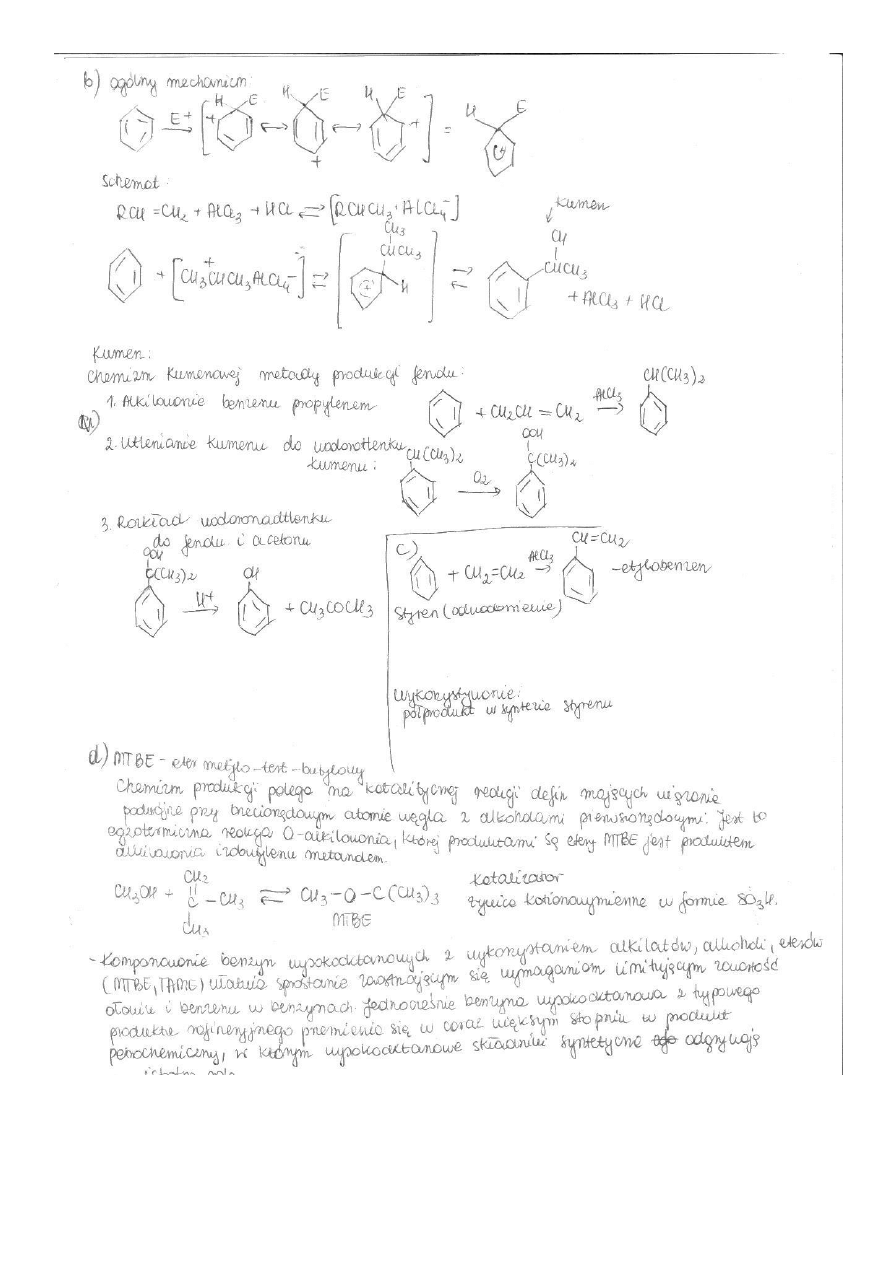 b) ogólny mechanizm:
E+ [ + H E ↔ H E + ↔ H E + ] = H E +
Schemat:
RCH = CH2 + AlCl3 + HCl ⇌ [RCHCH3 · AlCl4-]
kumen
CH3 CH
+ [CH3CHCH3AlCl4-] ⇌ [ CHCH3 + H ] ⇌ CHCH3
+
+ AlCl3 + HCl
Kumen:
Chemizm Kumenowej metody produkcji fenolu:
1. Alkilowanie benzenu propylenem
+ CH2CH = CH2 AlCl3 → CH(CH3)2
2. Utlenianie kumenu do wodorotlenku
kumenu:
CH(CH3)2 O2 → OOH C(CH3)2
3. Rozkład wodoronadtlenku
do fenolu i acetonu
OOH C(CH3)2 H+ → OH + CH3COCH3
c)
+ CH2=CH2 AlCl3 → CH=CH2 - etylobenzen
Styren (odwodornienie)
Wykorzystywanie:
półprodukt w syntezie styrenu
d) MTBE - eter metylo-test-butylowy
Chemizm produkcji polega na katalitycznej reakcji olefin mających wiązanie
podwójne przy trzeciorzędowym atomie węgla z alkoholami pierwszorzędowymi. Jest to
egzotermiczna reakcja O-alkilowania, której produktami są etery MTBE jest produktem
alkilowania izobutylenu metanolem.
CH3OH + CH2 = C - CH3 CH3 ⇌ CH3 - O - C(CH3)3
MTBE
katalizator
żywice kationowymienne w formie SO3H.
- Komponowanie benzyn wysokooktanowych z wykorzystaniem alkilatów, alkoholi, eterów
(MTBE, TAME) ułatwia sprostanie zaostrzającym się wymaganiom limitującym zawartość
ołowiu i benzenu w benzynach. Jednocześnie benzyna wysokooktanowa z typowego
produktu rafineryjnego przemienia się w coraz większym stopniu w produkt
petrochemiczny, w którym wysokooktanowe składniki syntetyczne odgrywają